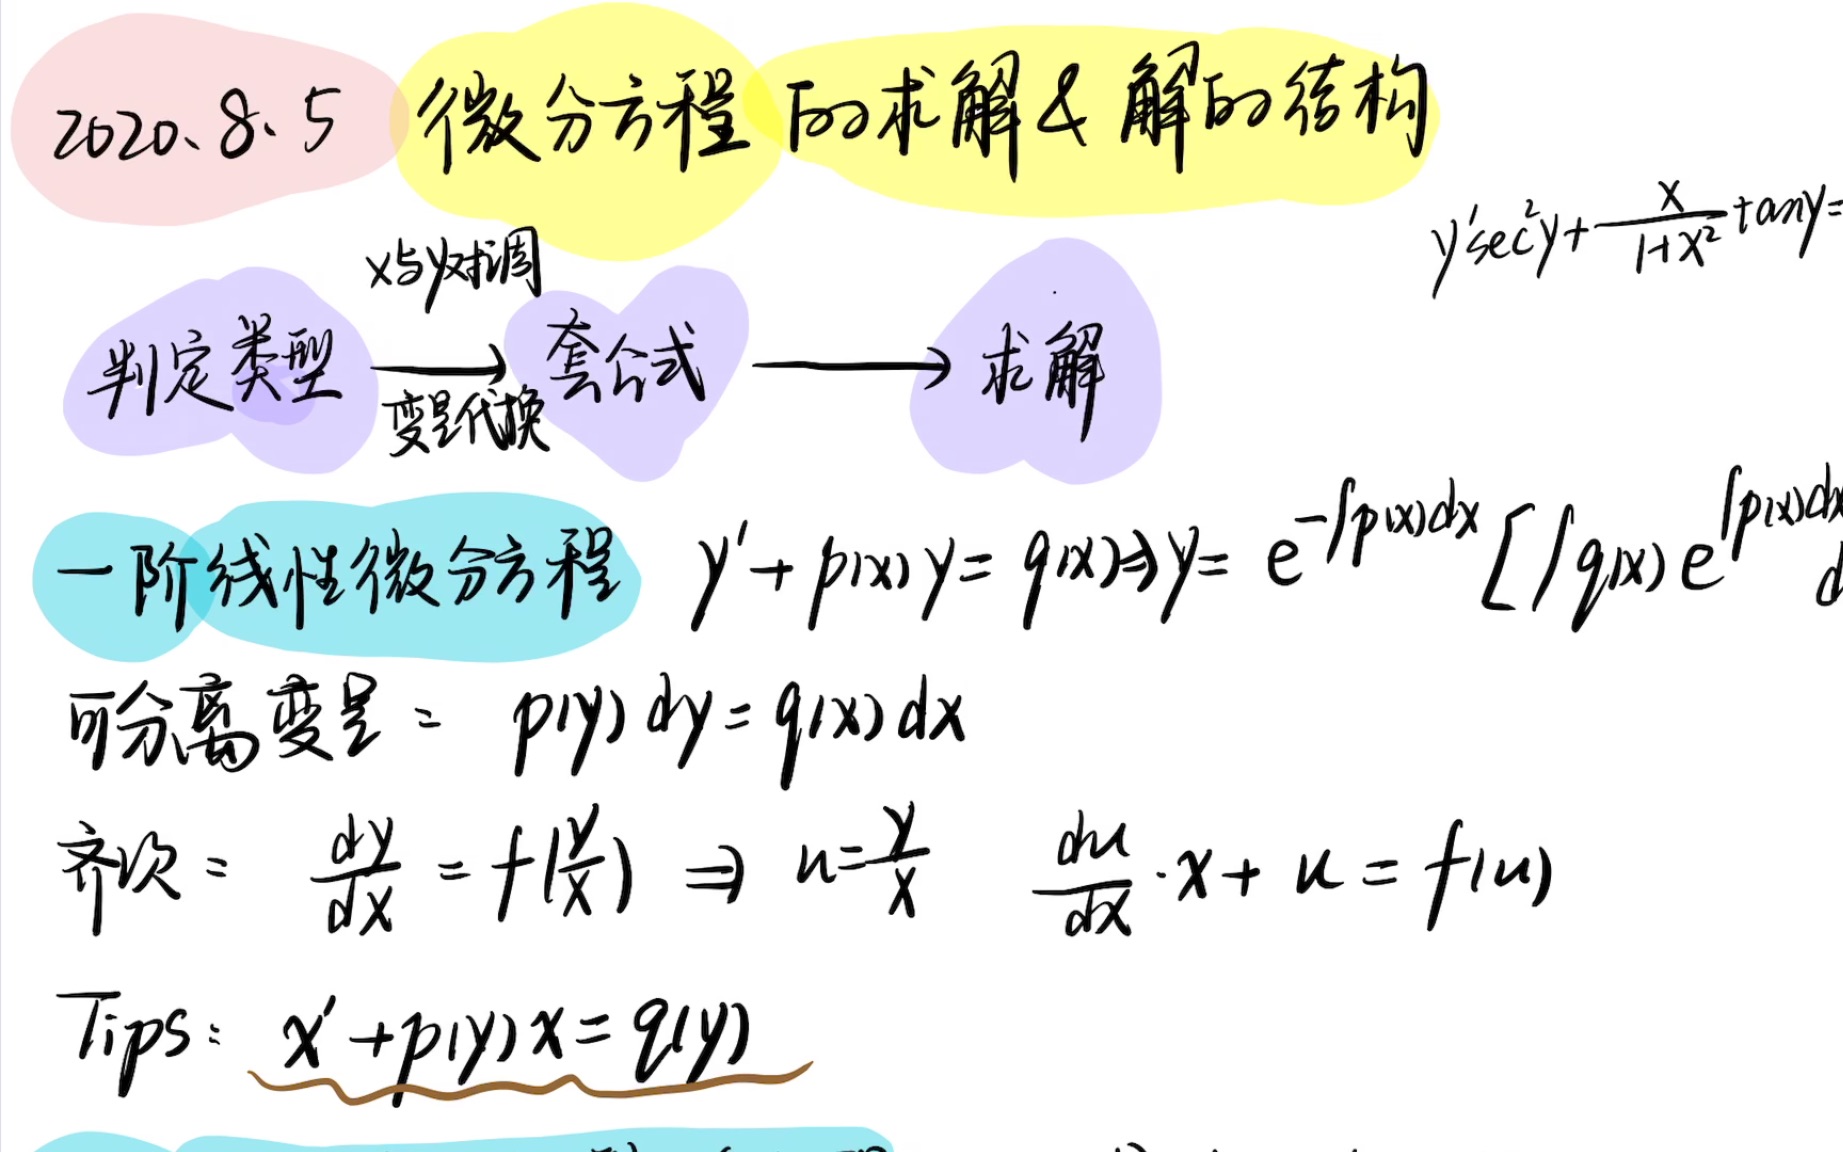 2020、8、5 微分方程的求解 & 解的结构
y'sec²y + x/(1+x²) tany =
x与y对调
判定类型 ⟶ 套公式 ⟶ 求解
变量代换
一阶线性微分方程 y' + p(x)y = q(x) ⇒ y = e^{-∫p(x)dx} [∫q(x)e^{∫p(x)dx} d
可分离变量: p(y)dy = q(x)dx
齐次: dy/dx = f(y/x) ⇒ u = y/x du/dx · x + u = f(u)
Tips: x' + p(y)x = q(y)